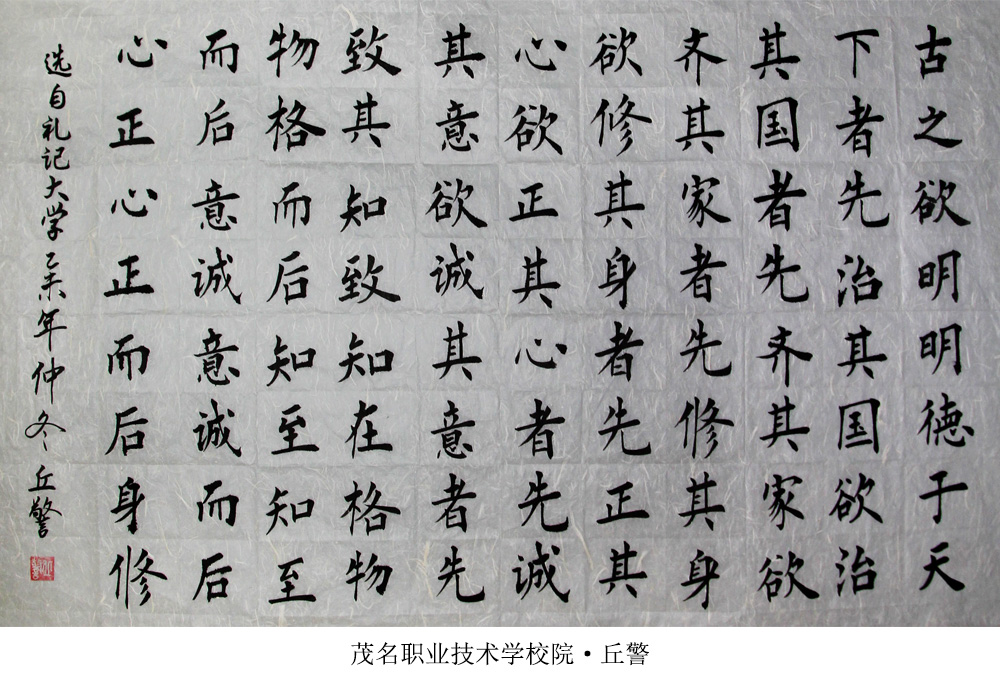 古之欲明明德于天
下者先治其国欲治
其国者先齐其家欲
齐其家者先修其身
欲修其身者先正其
心欲正其心者先诚
其意欲诚其意者先
致其知致知在格物
物格而后知至知至
而后意诚意诚而后
心正心正而后身修
选自礼记大学乙未年仲冬丘警
茂名职业技术学校院·丘警